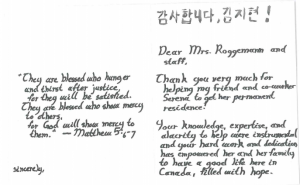 감사합니다, 김지현!
Dear Mrs. Roggemann and
staff,
Thank you very much for
helping my friend and co-worker
Serena to get her permanent
residence!
Your knowledge, expertise, and
alacrity to help were instrumental
and your hard work and dedication
has empowered her and her family
to have a good life here in
Canada, filled with hope.
"They are blessed who hunger
and thirst after justice,
for they will be satisfied.
They are blessed who show mercy
to others,
for God will show mercy to
them." — Matthew 5:6-7
sincerely,